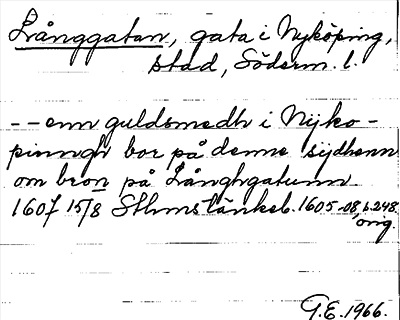 Långgatan, gata i Nyköping,
stad, Söderm. l.
-- enn guldsmedh i Nyko-
pinngh bor på denne sijdhenn
om bron på Långhgatunn
1607 15/8 Sthmstänkeb. 1605-08, s. 248.
orig.
G.E. 1966.